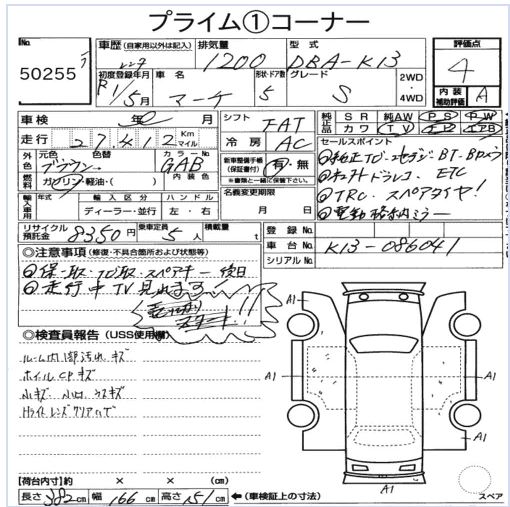 プライム①コーナー
No. 50255
車歴 (自家用以外は記入) レンタ
排気量 1200
型式 DBA-K13
評価点 4
初度登録年月 R1/5月
車名 マーチ
形状・ドア数 5
グレード S
2WD・4WD
内装補助評価 A
車検 年 月
走行 27,412 Km マイル
シフト FAT
冷房 AC
純正品 SR 純AW PS PW
カワ TV エB エアB
外色 元色 ブラウン 色替
カラーNo. GAB
内装色
燃料 ガソリン・軽油・( )
新車整備手帳(保証書付) 有・無
※書類と一緒に保管して下さい
セールスポイント
◎純正TV・セグジ BT・Bカメラ
◎ドラレコ ETC
◎TRC. スペアタイヤ!
◎電動格納ミラー
輸入車用 年式 輸入区分 ハンドル
ディーラー・並行 左・右
名義変更期限 月 日
リサイクル預託金 8350円
乗車定員 5人
積載量 t
登録No.
車台No. K13-086041
シリアルNo.
◎注意事項 (修復・不具合箇所および状態等)
◎保・取・TV取・スペアキー 後日
◎走行中TV見れます!
売切りスタート!!
◎検査員報告 (USS使用欄)
ルーム内1部汚れ キズ
ホイールCPキズ
小キズ 小凹 ウスキズ
Hライトレンズクリアハゲ
A1
A1
A1
A1
A1
スペア
【荷台内寸】約 × × (cm)
長さ 382cm 幅 166cm 高さ 151cm ←(車検証上の寸法)